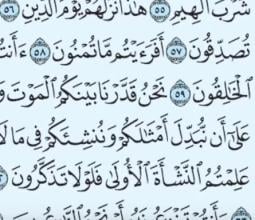 شُرْبَ ٱلْهِيمِ ٥٥ هَٰذَا نُزُلُهُمْ يَوْمَ ٱلدِّينِ ٥٦
تُصَدِّقُونَ ٥٧ أَفَرَءَيْتُم مَّا تُمْنُونَ ٥٨ ءَأَنتُ
ٱلْخَٰلِقُونَ ٥٩ نَحْنُ قَدَّرْنَا بَيْنَكُمُ ٱلْمَوْتَ وَ
عَلَىٰٓ أَن نُّبَدِّلَ أَمْثَٰلَكُمْ وَنُنشِئَكُمْ فِي مَا لَا
عَلِمْتُمُ ٱلنَّشْأَةَ ٱلْأُولَىٰ فَلَوْلَا تَذَكَّرُونَ